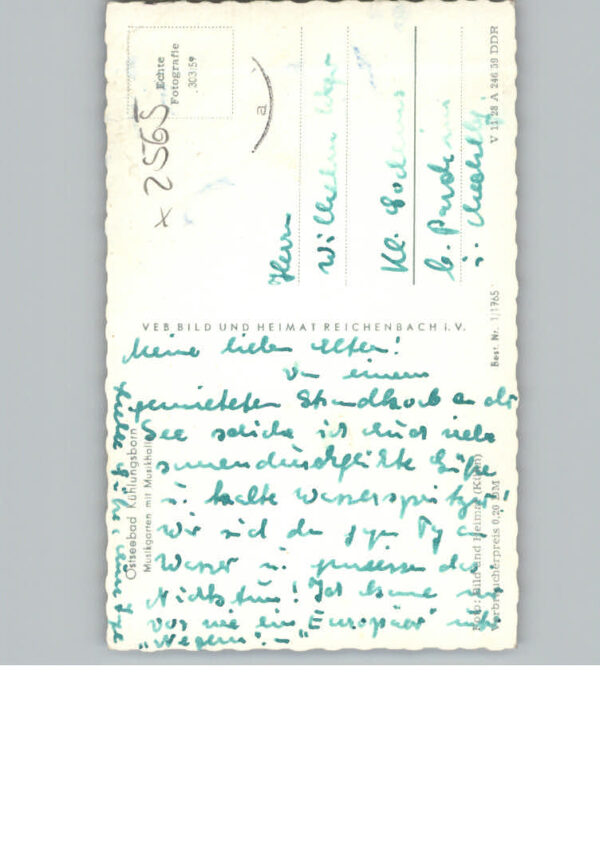 Echte
Fotografie
303/59
x 2565
a
Herrn
Wilhelm
Kl. Godems
b. Parchim
i. Mecklbg.
V 11 28 A 246 59 DDR
Best. Nr. 1/1765
VEB BILD UND HEIMAT REICHENBACH i. V.
Meine lieben Eltern!
Von einem
gemieteten Strandkorb an der
See schicke ich Euch viele
sonnendurchglühte Grüße
u. kalte Wasserspritzer!
Wir sind den ganzen Tag am
Wasser u. geniessen das
Nichtstun! Ich komme mir
vor wie ein "Europäer" unter
"Negern". –
Ostseebad Kühlungsborn
Musikgarten mit Musikhalle
Foto: Bild und Heimat
Verbraucherpreis 0,20 DM